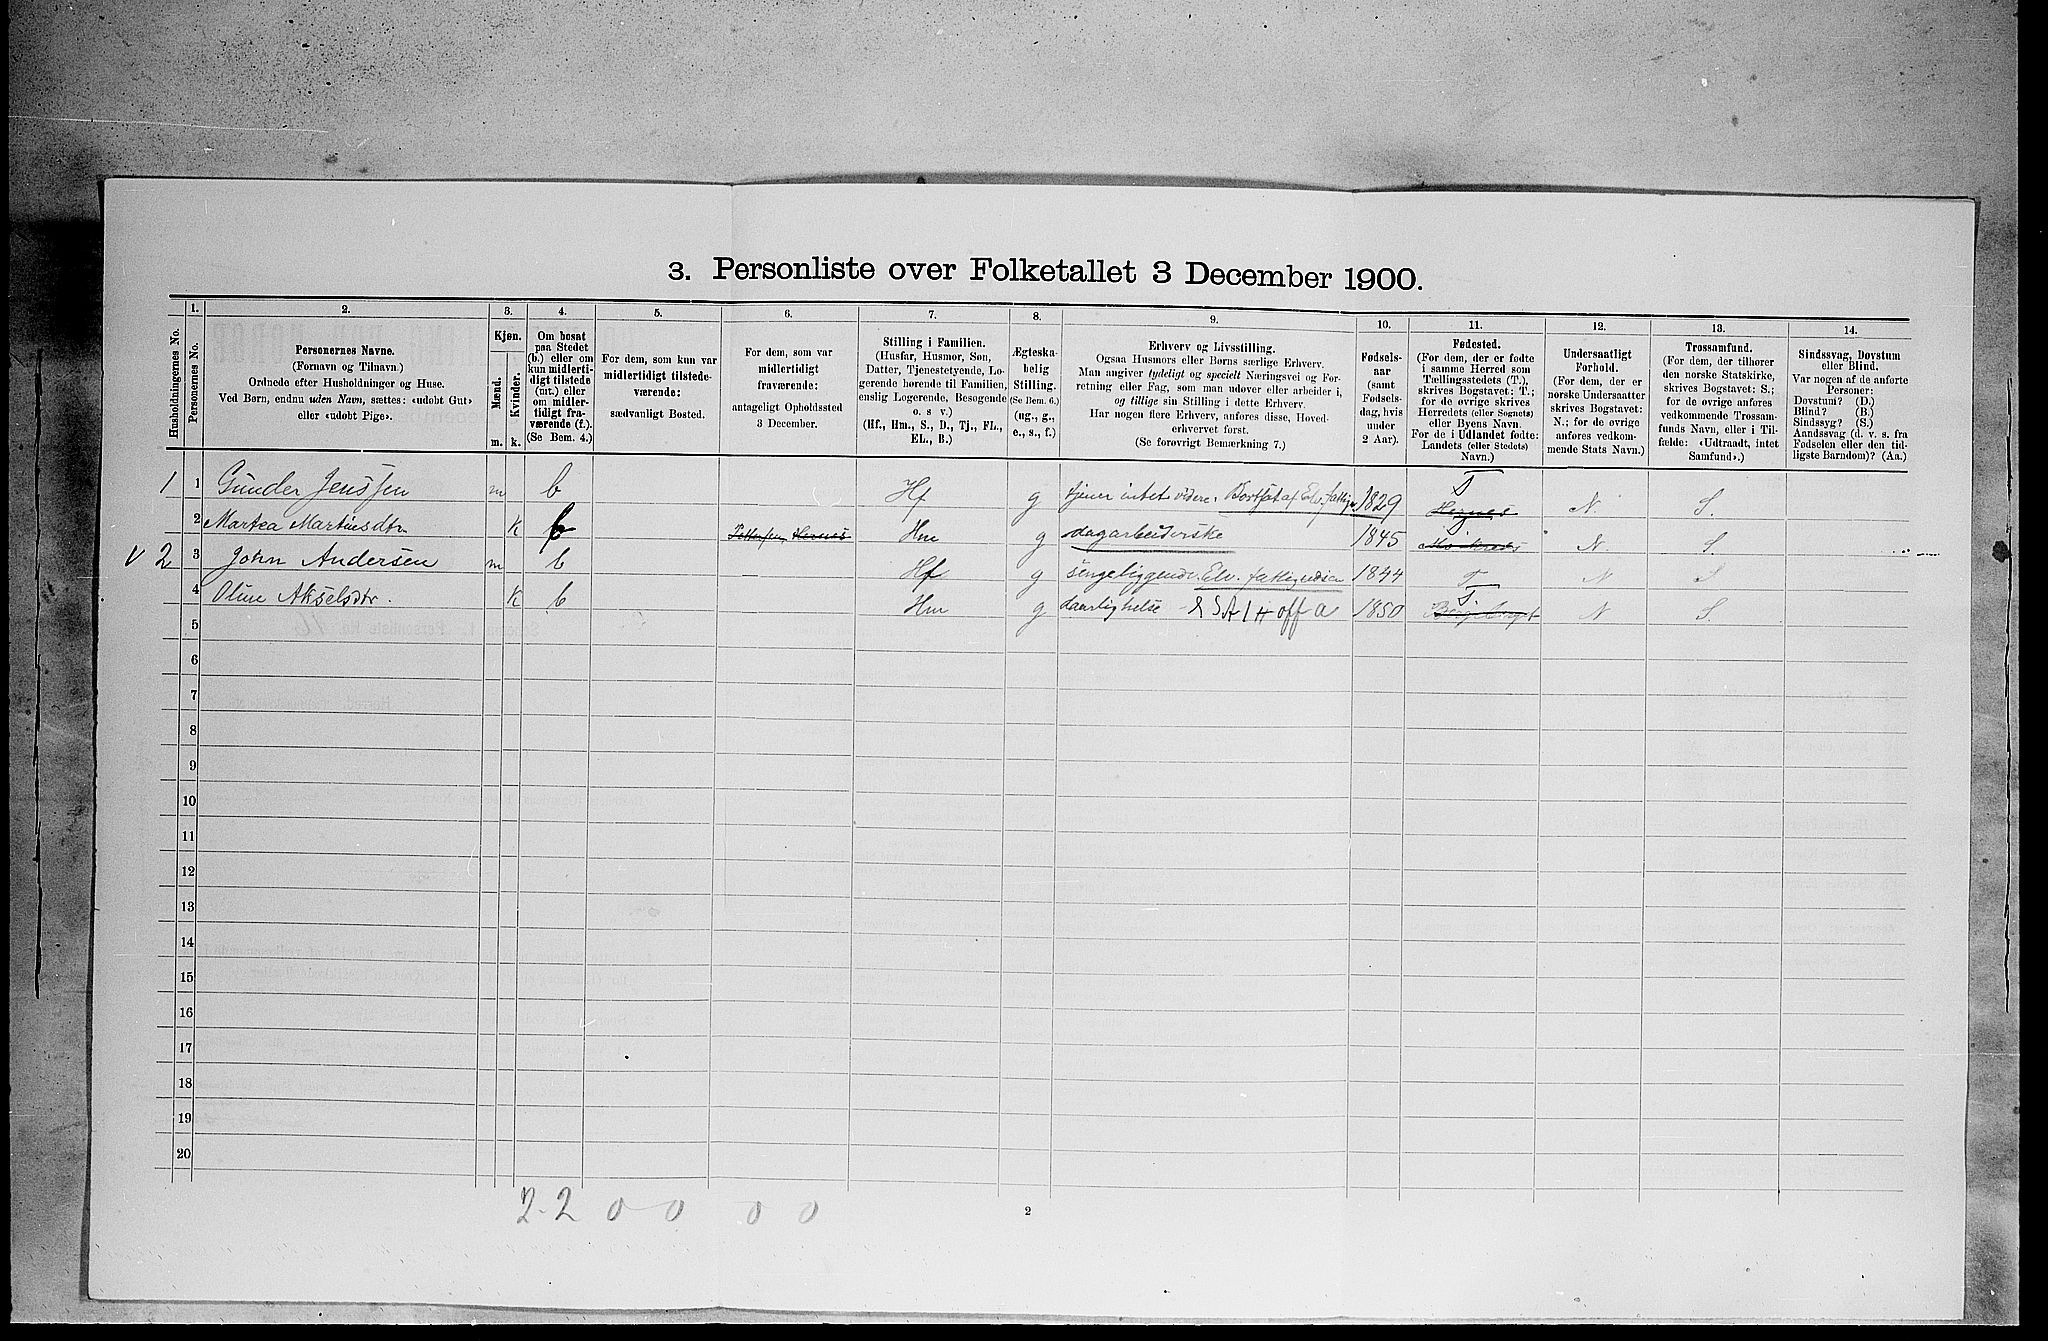 3. Personliste over Folketallet 3 December 1900.
Husholdningernes No.
1.
Personernes No.
2.
Personernes Navne.
(Fornavn og Tilnavn.)
Ordnede efter Husholdninger og Huse.
Ved Børn, endnu uden Navn, sættes: «udøbt Gut»
eller «udøbt Pige».
3.
Kjøn.
Mænd.
Kvinder.
m.
k.
4.
Om bosat
paa Stedet
(b.) eller om
kun midlerti-
digt tilstede
(mt.) eller
om midler-
tidigt fra-
værende (f.).
(Se Bem. 4.)
5.
For dem, som kun var
midlertidigt tilstede-
værende:
sædvanligt Bosted.
6.
For dem, som var
midlertidigt
fraværende:
antageligt Opholdssted
3 December.
7.
Stilling i Familien.
(Husfar, Husmor, Søn,
Datter, Tjenestetyende, Lo-
gerende hørende til Familien,
enslig Logerende, Besøgende
o. s v.)
(Hf., Hm., S., D., Tj., FL.,
EL., B.)
8.
Ægteska-
belig
Stilling.
(Se Bem. 6.)
(ug., g.,
e., s., f.)
9.
Erhverv og Livsstilling.
Ogsaa Husmors eller Børns særlige Erhverv.
Man angiver tydeligt og specielt Næringsvei og For-
retning eller Fag, som man udøver eller arbeider i,
og tillige sin Stilling i dette Erhverv.
Har nogen flere Erhverv, anføres disse, Hoved-
erhvervet først.
(Se forøvrigt Bemærkning 7.)
10.
Fødsels-
aar
(samt
Fødsels-
dag, hvis
under
2 Aar).
11.
Fødested.
(For dem, der er fødte
i samme Herred som
Tællingsstedets (T.),
skrives Bogstavet: T.;
for de øvrige skrives
Herredets (eller Sognets)
eller Byens Navn.
For de i Udlandet fødte:
Landets (eller Stedets)
Navn.)
12.
Undersaatligt
Forhold.
(For dem, der er
norske Undersaatter
skrives Bogstavet:
N.; for de øvrige
anføres vedkom-
mende Stats Navn.)
13.
Trossamfund.
(For dem, der tilhører
den norske Statskirke,
skrives Bogstavet: S.;
for de øvrige anføres
vedkommende Trossam-
funds Navn, eller i Til-
fælde: «Udtraadt, intet
Samfund».)
14.
Sindssvag, Døvstum
eller Blind.
Var nogen af de anførte
Personer:
Døvstum? (D.)
Blind? (B.)
Sindssyg? (S.)
Aandssvag (d. v. s. fra
Fødselen eller den tid-
ligste Barndom)? (Aa.)
1 1 Gunder Jenssen m b Hf g tjener intet videre. Bortsat af Elv. fattigv. 1829 T Hernes N. S.
2 Martea Martinsdtr. k b Hernes Hm g dagarbeiderske 1845 T N. S.
v 2 3 John Andersen m b Hf g sengeliggende. Elv. fattigvæsen 1844 T N S
4 Oline Akselsdtr. k b Hm g daarlig helse 1850 T N S.
5
6
7
8
9
10
11
12
13
14
15
16
17
18
19
20
2-2 0 0 0 0
2